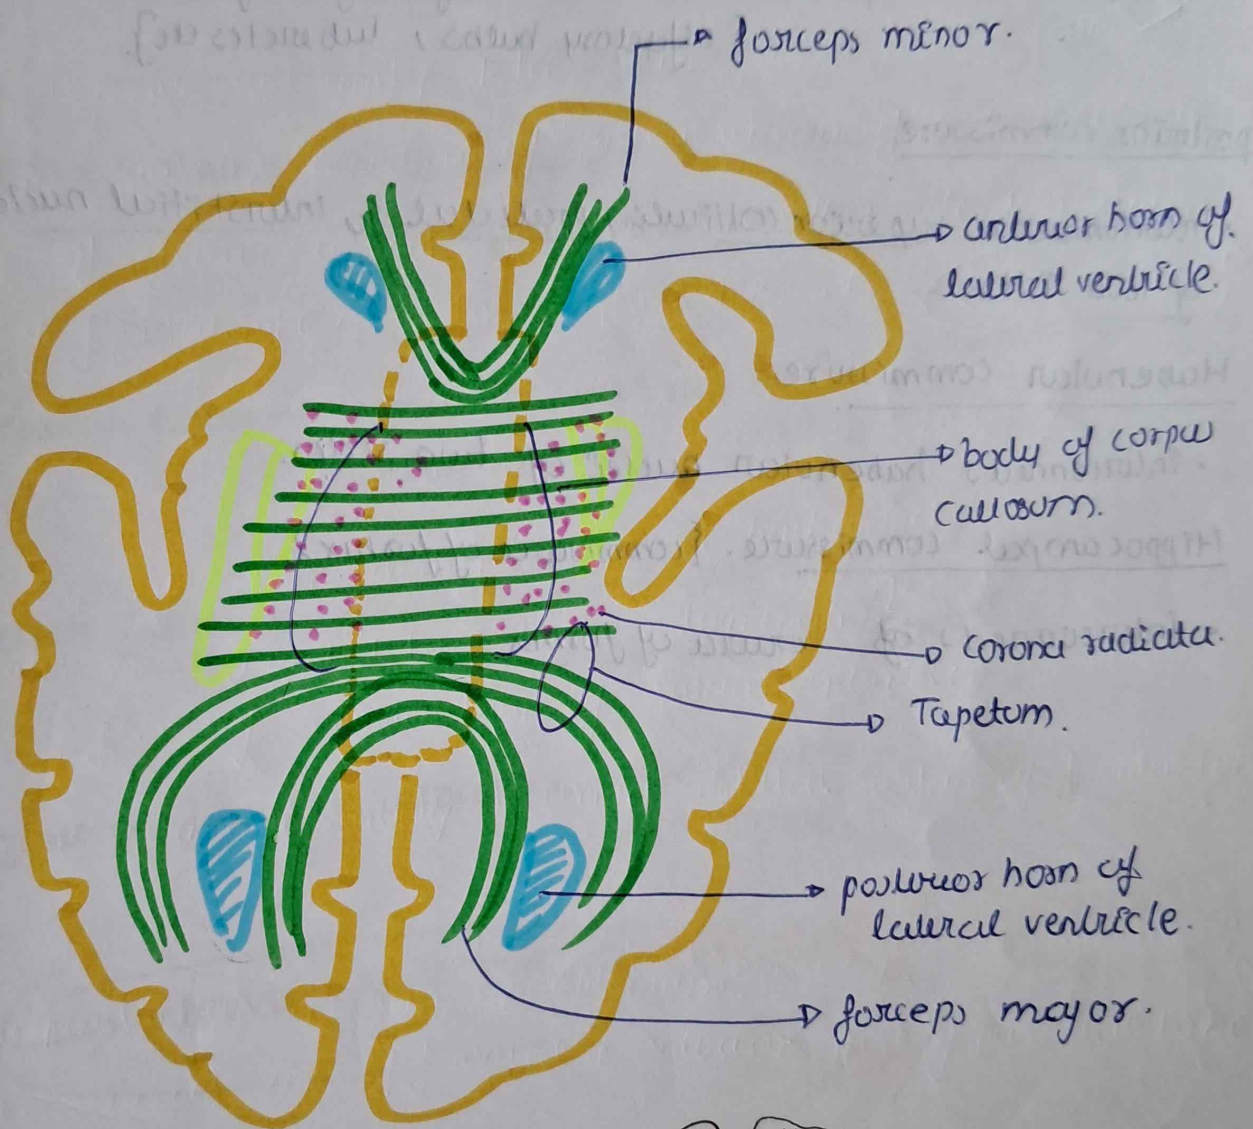 forceps minor.
anterior horn of
lateral ventricle.
body of corpus
callosum.
corona radiata.
Tapetum.
posterior horn of
lateral ventricle.
forceps major.